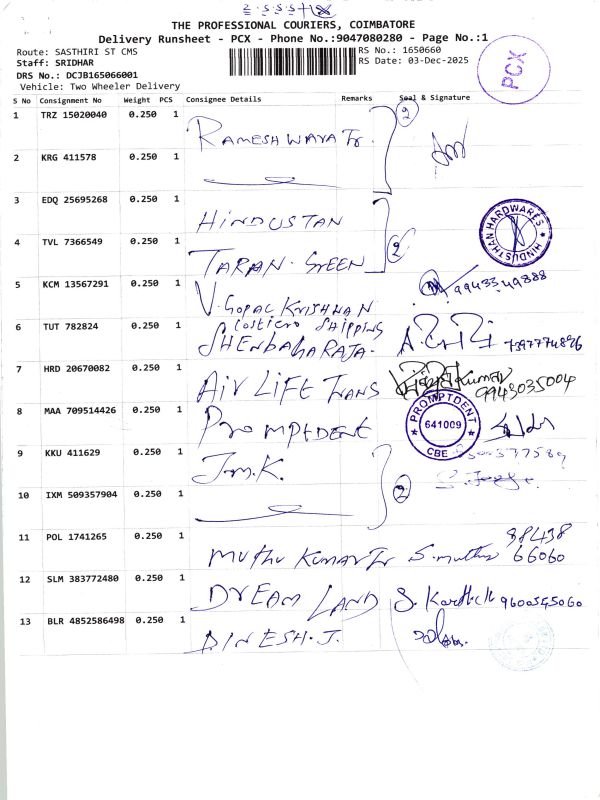 THE PROFESSIONAL COURIERS, COIMBATORE
Delivery Runsheet - PCX - Phone No.:9047080280 - Page No.:1
Route: SASTHIRI ST CMS
RS No.: 1650660
Staff: SRIDHAR
RS Date: 03-Dec-2025
DRS No.: DCJB165066001
Vehicle: Two Wheeler Delivery
PCX
S No Consignment No Weight PCS Consignee Details Remarks Seal & Signature
1 TRZ 15020040 0.250 1 RAMESHWARA Tr. 2
2 KRG 411578 0.250 1
3 EDQ 25695268 0.250 1 HINDUSTAN HINDUSTHAN HARDWARES
4 TVL 7366549 0.250 1 TARAN. GREEN 2
5 KCM 13567291 0.250 1 V. GOPAL KRISHNAN
6 TUT 782824 0.250 1 SHIPPING
SHENBAGARAJA.
7 HRD 20670082 0.250 1 AIR LIFE TRANS Kumar 9943035004
8 MAA 709514426 0.250 1 PROMPTDENT PROMPTDENT 641009 CBE
9 KKU 411629 0.250 1 J.M.K.
10 IXM 509357904 0.250 1 2
11 POL 1741265 0.250 1 MUTHU KUMAR Tr S. muthu 98438 66060
12 SLM 383772480 0.250 1 DREAM LAND S. Karthick 9600545060
13 BLR 4852586498 0.250 1 DINESH. J.